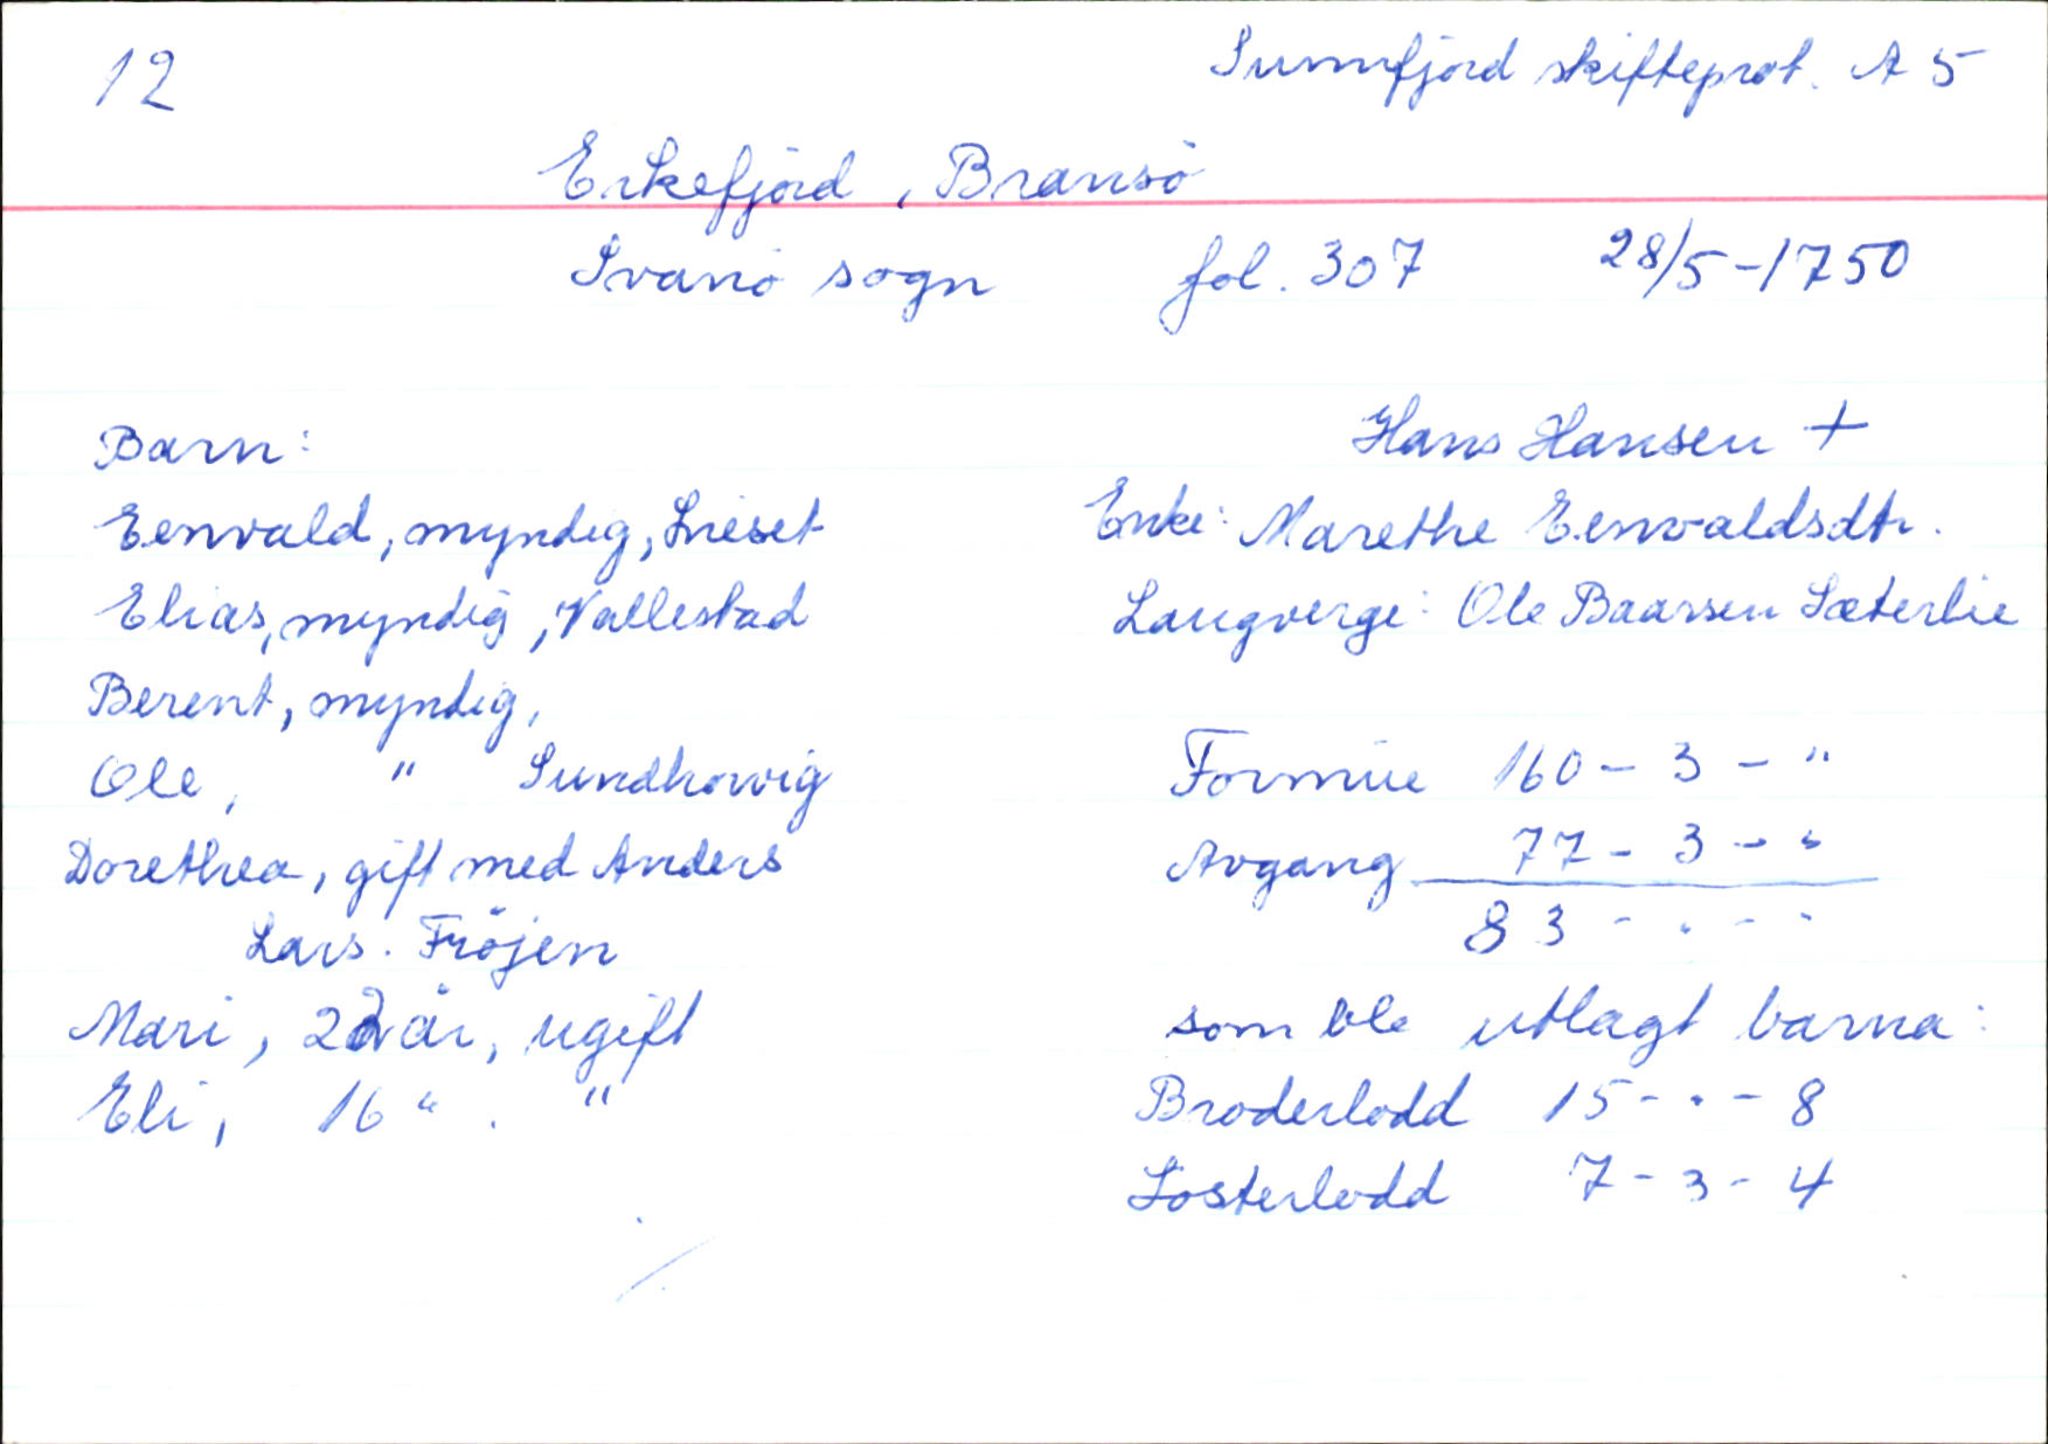 12
Sunnfjord skifteprot. A 5
Erkefjord, Bransö
Svanö sogn fol. 307 28/5-1750
Barn:
Eenvald, myndig, Lieset
Elias, myndig, Vallestad
Berent, myndig,
Ole, " Sundhovig
Dorethea, gift med Anders
Lars. Fröjen
Mari, år, ugift
Eli, 16 " . "
Hans Hansen +
Enke: Marethe Eenvaldsdtr.
Laugverge: Ole Baarsen Sæterlie
Formue 160 - 3 - "
Avgang 77 - 3 - "
83 - . - -
som ble utlagt barna:
Broderlodd 15 - . - 8
Søsterlodd 7 - 3 - 4